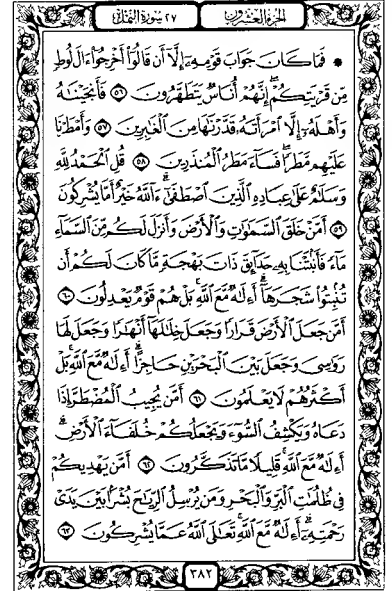 الجزء العشرون
٢٧ سورة النمل
۞ فَمَا كَانَ جَوَابَ قَوْمِهِۦٓ إِلَّآ أَن قَالُوٓا۟ أَخْرِجُوٓا۟ ءَالَ لُوطٍ
مِّن قَرْيَتِكُمْ ۖ إِنَّهُمْ أُنَاسٌ يَتَطَهَّرُونَ ٥٦ فَأَنجَيْنَٰهُ
وَأَهْلَهُۥٓ إِلَّا ٱمْرَأَتَهُۥ قَدَّرْنَٰهَا مِنَ ٱلْغَٰبِرِينَ ٥٧ وَأَمْطَرْنَا
عَلَيْهِم مَّطَرًا ۖ فَسَآءَ مَطَرُ ٱلْمُنذَرِينَ ٥٨ قُلِ ٱلْحَمْدُ لِلَّهِ
وَسَلَٰمٌ عَلَىٰ عِبَادِهِ ٱلَّذِينَ ٱصْطَفَىٰٓ ۗ ءَآللَّهُ خَيْرٌ أَمَّا يُشْرِكُونَ
٥٩ أَمَّنْ خَلَقَ ٱلسَّمَٰوَٰتِ وَٱلْأَرْضَ وَأَنزَلَ لَكُم مِّنَ ٱلسَّمَآءِ
مَآءً فَأَنۢبَتْنَا بِهِۦ حَدَآئِقَ ذَاتَ بَهْجَةٍ مَّا كَانَ لَكُمْ أَن
تُنۢبِتُوا۟ شَجَرَهَآ ۗ أَءِلَٰهٌ مَّعَ ٱللَّهِ ۚ بَلْ هُمْ قَوْمٌ يَعْدِلُونَ ٦٠
أَمَّن جَعَلَ ٱلْأَرْضَ قَرَارًا وَجَعَلَ خِلَٰلَهَآ أَنْهَٰرًا وَجَعَلَ لَهَا
رَوَٰسِىَ وَجَعَلَ بَيْنَ ٱلْبَحْرَيْنِ حَاجِزًا ۗ أَءِلَٰهٌ مَّعَ ٱللَّهِ ۚ بَلْ
أَكْثَرُهُمْ لَا يَعْلَمُونَ ٦١ أَمَّن يُجِيبُ ٱلْمُضْطَرَّ إِذَا
دَعَاهُ وَيَكْشِفُ ٱلسُّوٓءَ وَيَجْعَلُكُمْ خُلَفَآءَ ٱلْأَرْضِ ۗ
أَءِلَٰهٌ مَّعَ ٱللَّهِ ۚ قَلِيلًا مَّا تَذَكَّرُونَ ٦٢ أَمَّن يَهْدِيكُمْ
فِى ظُلُمَٰتِ ٱلْبَرِّ وَٱلْبَحْرِ وَمَن يُرْسِلُ ٱلرِّيَٰحَ بُشْرًۢا بَيْنَ يَدَىْ
رَحْمَتِهِۦٓ ۗ أَءِلَٰهٌ مَّعَ ٱللَّهِ ۚ تَعَٰلَى ٱللَّهُ عَمَّا يُشْرِكُونَ ٦٣
٣٨٢